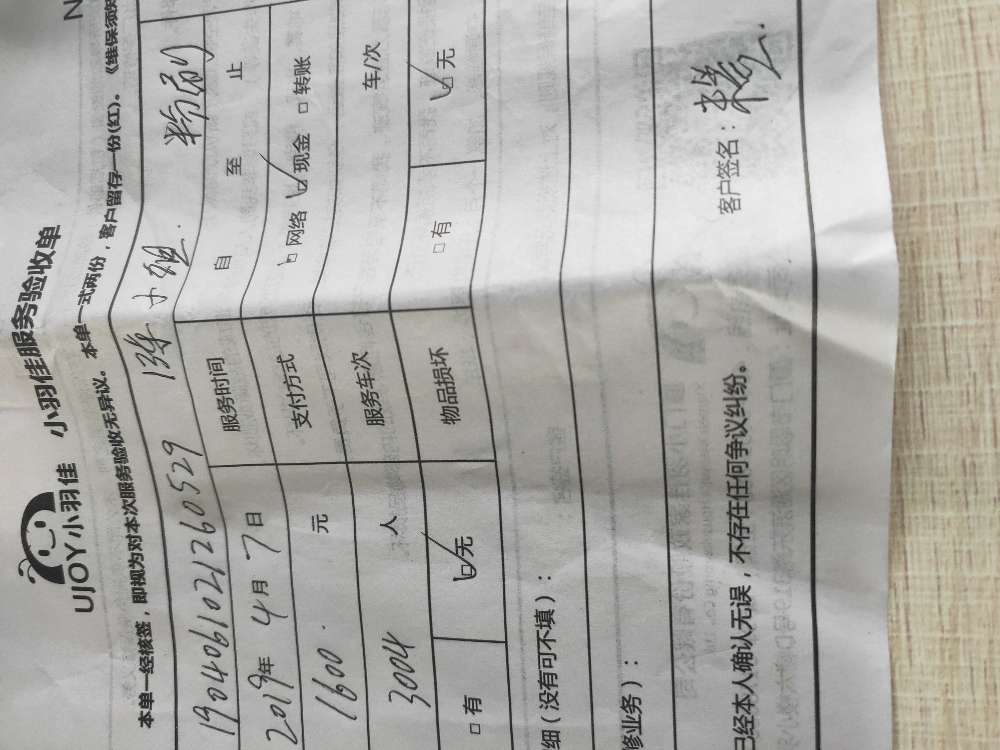 UJOY小羽佳 小羽佳服务验收单
N
本单一经核签，即视为对本次服务验收无异议。本单一式两份，客户留存一份(红)。《维保须知
1904061021260529 张小姐
服务时间 自 至 止
2019年 4月 7日
支付方式 网络 现金 转账
1600 元
服务车次 车/次
3004 人
物品损坏 有 无
有 无
细（没有可不填）：
修业务）：
已经本人确认无误，不存在任何争议纠纷。 客户签名：